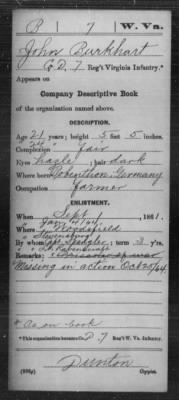 B | 7 | W. Va.
John Burkhart
Co. D, 7 Reg't Virginia Infantry.*
Appears on
Company Descriptive Book
of the organization named above.
DESCRIPTION.
Age 21 years; height 5 feet 5 inches.
Complexion fair
Eyes hazle; hair dark
Where born Germany
Occupation farmer
ENLISTMENT.
When Sept, 1861.
Where Woodsfield
Stevensburg
By whom Capt ; term 3 y'rs.
Remarks: Prisoner of war
Missing in action Oct 25/64
* As on book
*This organization became Co. D, 7 Reg't W. Va. Infantry.
Dunton
Copyist.